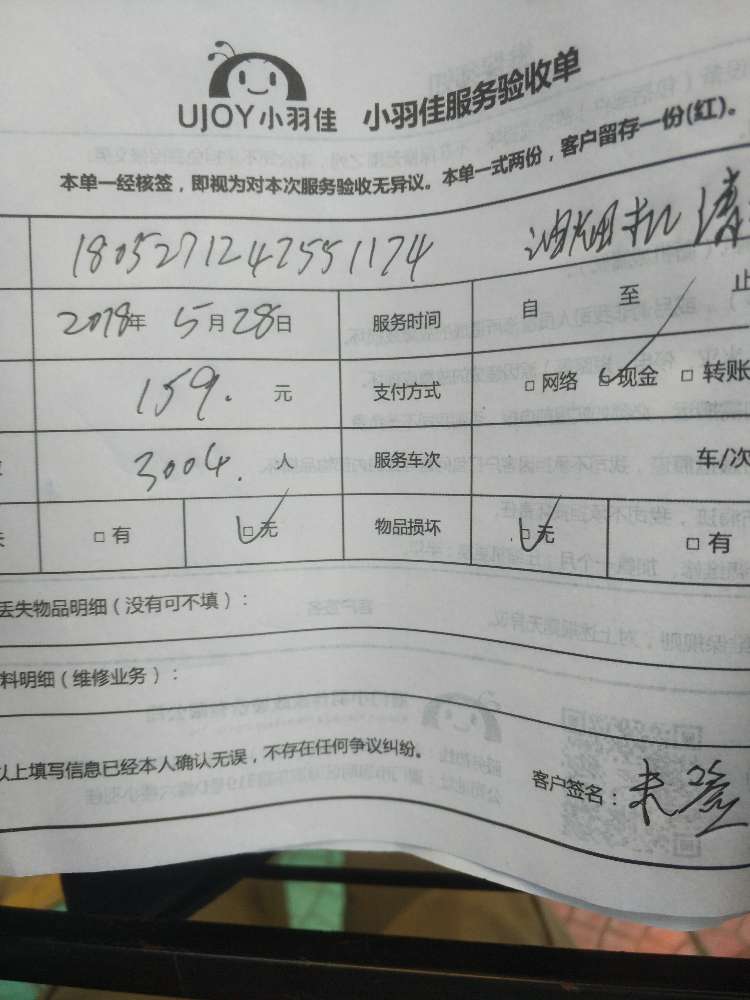 UJOY小羽佳 小羽佳服务验收单
本单一经核签，即视为对本次服务验收无异议。本单一式两份，客户留存一份(红)。
180527124755 1174 油烟机清
2018年 5月28日 服务时间 自 至 止
159. 元 支付方式 □ 网络 □ 现金 □ 转账
3004. 人 服务车次 车/次
□ 有 □ 无 物品损坏 □ 无 □ 有
丢失物品明细（没有可不填）：
料明细（维修业务）：
以上填写信息已经本人确认无误，不存在任何争议纠纷。
客户签名：未签